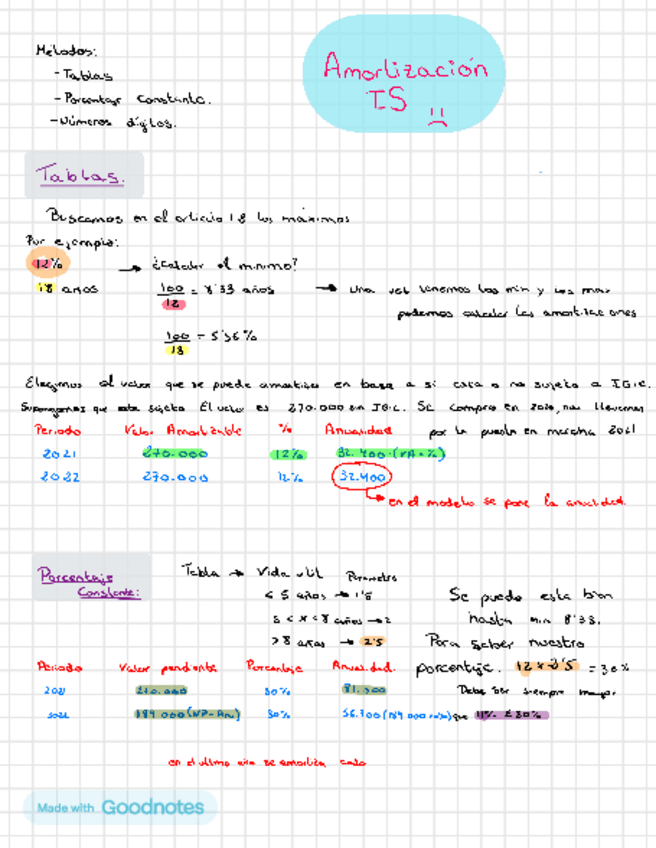 Métodos:
- Tablas
- Porcentaje Constante.
- Números dígitos.
Amortización
IS
Tablas.
Buscamos en el artículo 18 los máximos
Por ejemplo:
12%
18 años
→ ¿Calcular el mínimo?
100/12 = 8'33 años
→ Una vez tenemos los min y los max
podemos calcular las amortizaciones
100/18 = 5'56%
Elegimos el valor que se puede amortizar en base a si esta o no sujeto a IGIC.
Supongamos que este sujeto El valor es 270.000 sin IGIC. Se compro en 2020, nos llevamos
por la puesta en marcha 2021
Periodo Valor Amortizable % Anualidad
2021 270.000 12% 32.400 (VA·%)
2022 270.000 12% 32.400
en el modelo se pone la anualidad.
Porcentaje
Constante:
Tabla → Vida util Parametro
< 5 años → 1'5
5 < x < 8 años → 2
> 8 años → 2'5
Se puede esta bien
hasta min 8'33.
Para saber nuestro
porcentaje. 12 x 2'5 = 30%
Debe ser siempre mayor
que 11% ≤ 30%
Periodo Valor pendiente Porcentaje Anualidad.
2021 270.000 30% 81.000
2022 189.000 (VP-An) 30% 56.700
en el último año se amortiza todo
Made with Goodnotes